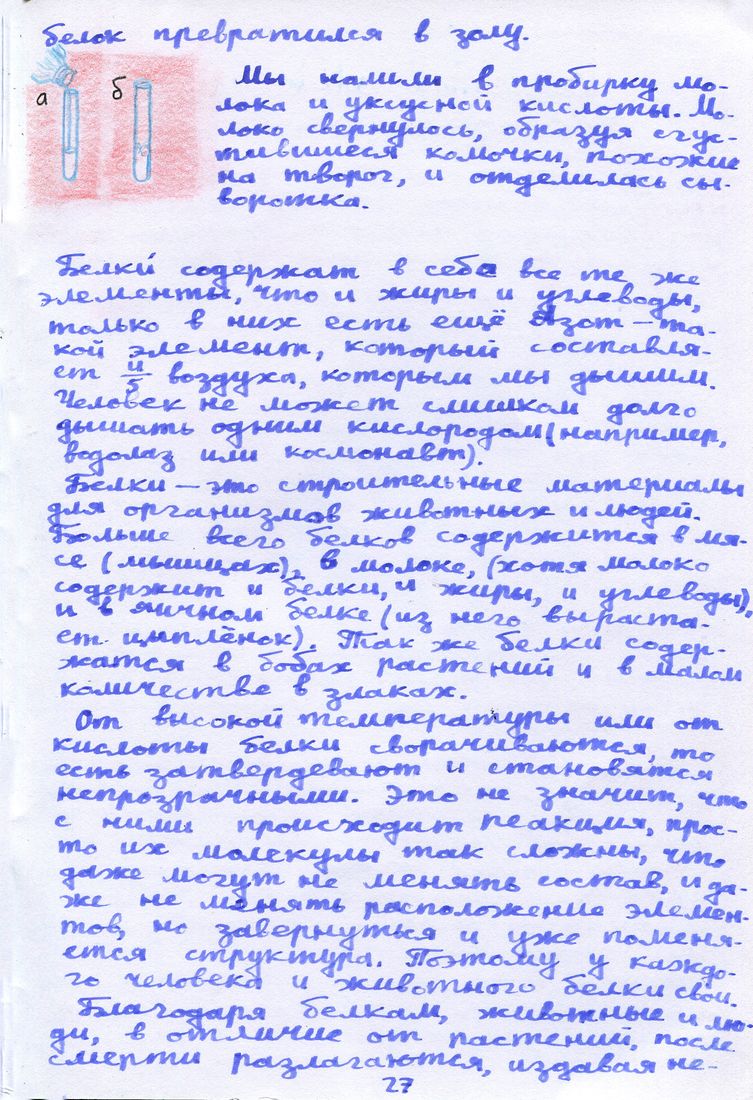 белок превратился в золу.
а
б
Мы налили в пробирку мо-
лока и уксусной кислоты. Мо-
локо свернулось, образуя сгус-
тившиеся комочки, похожие
на творог, и отделилась сы-
воротка.
Белки́ содержат в себе все те же
элементы, что и жиры и углеводы,
только в них есть ещё Азот — та-
кой элемент, который составля-
ет 4/5 воздуха, которым мы дышим.
Человек не может слишком долго
дышать одним кислородом (например,
водолаз или космонавт).
Белки — это строительные материалы
для организмов животных и людей.
Больше всего белков содержится в мя-
се (мышцах), в молоке, (хотя молоко
содержит и белки, и жиры, и углеводы),
и в яичном белке (из него выраста-
ет цыплёнок). Так же белки содер-
жатся в бобах растений и в малом
количестве в злаках.
От высокой температуры или от
кислоты белки сворачиваются, то
есть затвердевают и становятся
непрозрачными. Это не значит, что
с ними происходит реакция, прос-
то их молекулы так сложны, что
даже могут не менять состав, и да-
же не менять расположение элемен-
тов, но завернуться и уже поменя-
ется структура. Поэтому у каждо-
го человека и животного белки свои.
Благодаря белкам, животные и лю-
ди, в отличие от растений, после
смерти разлагаются, издавая не-
27